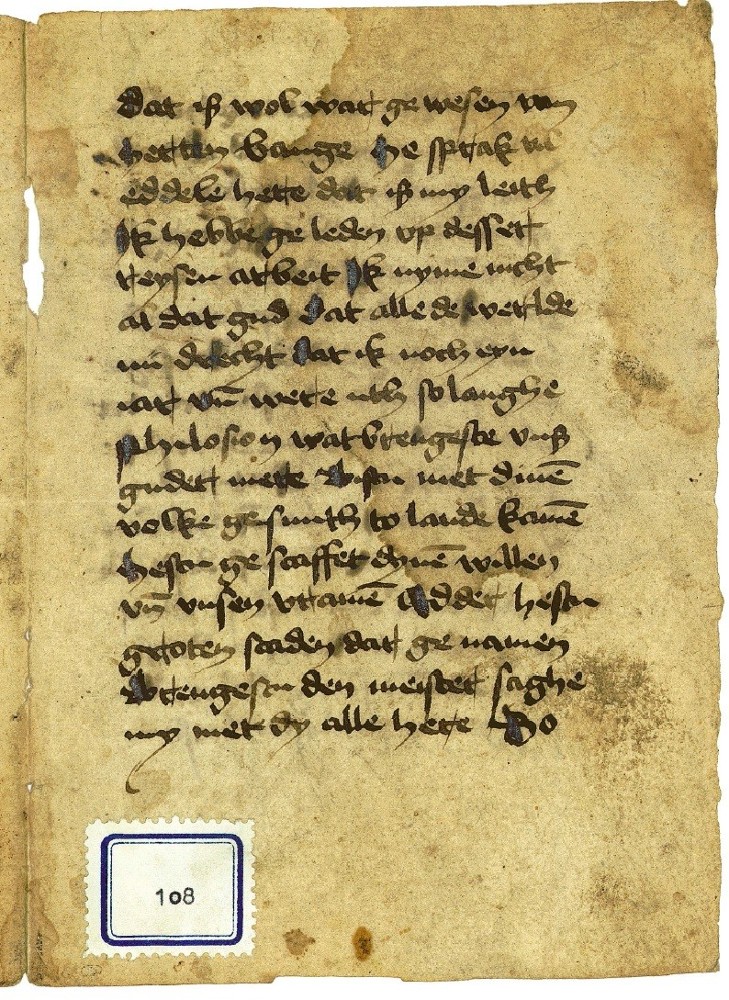 dat iß wol wat ge wesen van
herten bange he sprak vil
eddele here dat iß my leith
Ik hebbe ge leden vp desser
reysen arbeit Ik nyme nicht
al dat gud dat alle de werlde
dat ik noch eyn
iar vn̄ were vth so langhe
philosion wat brengestu vnß
guder mere bistu met dinē
volke gesunth to lande kamē
hestu ge scaffet dynē willen
vn̄ vnsen vramē Edder hestu
groten scaden dar ge namen
Brengestu den meister saghe
my met dy alle here Do
108